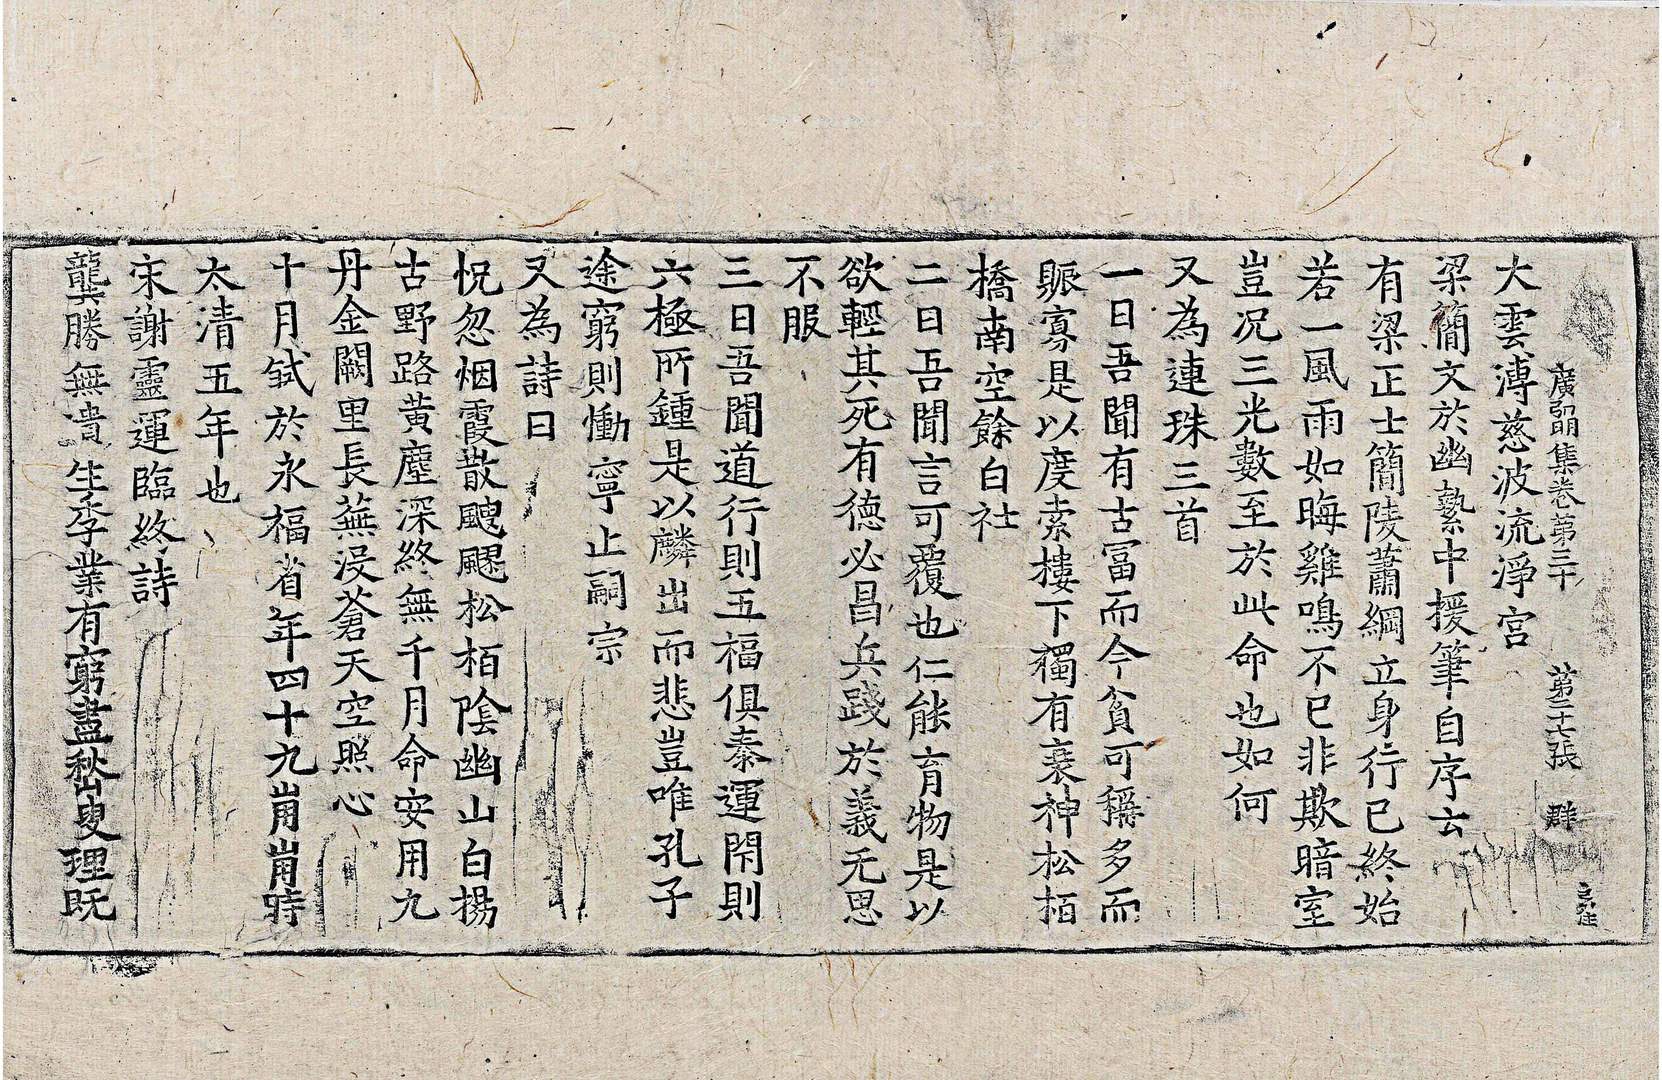 廣弘明集卷第三十 第二十七張 群
大雲溥慈波流淨宮
梁簡文於幽縶中援筆自序云
有梁正士蘭陵蕭綱立身行已終始
若一風雨如晦雞鳴不已非欺暗室
豈况三光數至於此命也如何
又為連珠三首
一曰吾聞有古富而今貧可稱多而
賑寡是以度索樓下獨有衰神松栢
橋南空餘白社
二曰吾聞言可覆也仁能育物是以
欲輕其死有德必昌兵踐於義无思
不服
三曰吾聞道行則五福俱泰運閇則
六極所鍾是以麟出而悲豈唯孔子
途窮則慟寧止嗣宗
又為詩曰
怳忽烟霞散颼飀松栢陰幽山白楊
古野路黃塵深終無千月命安用九
丹金闕里長蕪没蒼天空照心
十月弑於永福省年四十九崩崩時
太清五年也
宋謝靈運臨終詩
龔勝無遺生季業有窮盡嵇叟理既